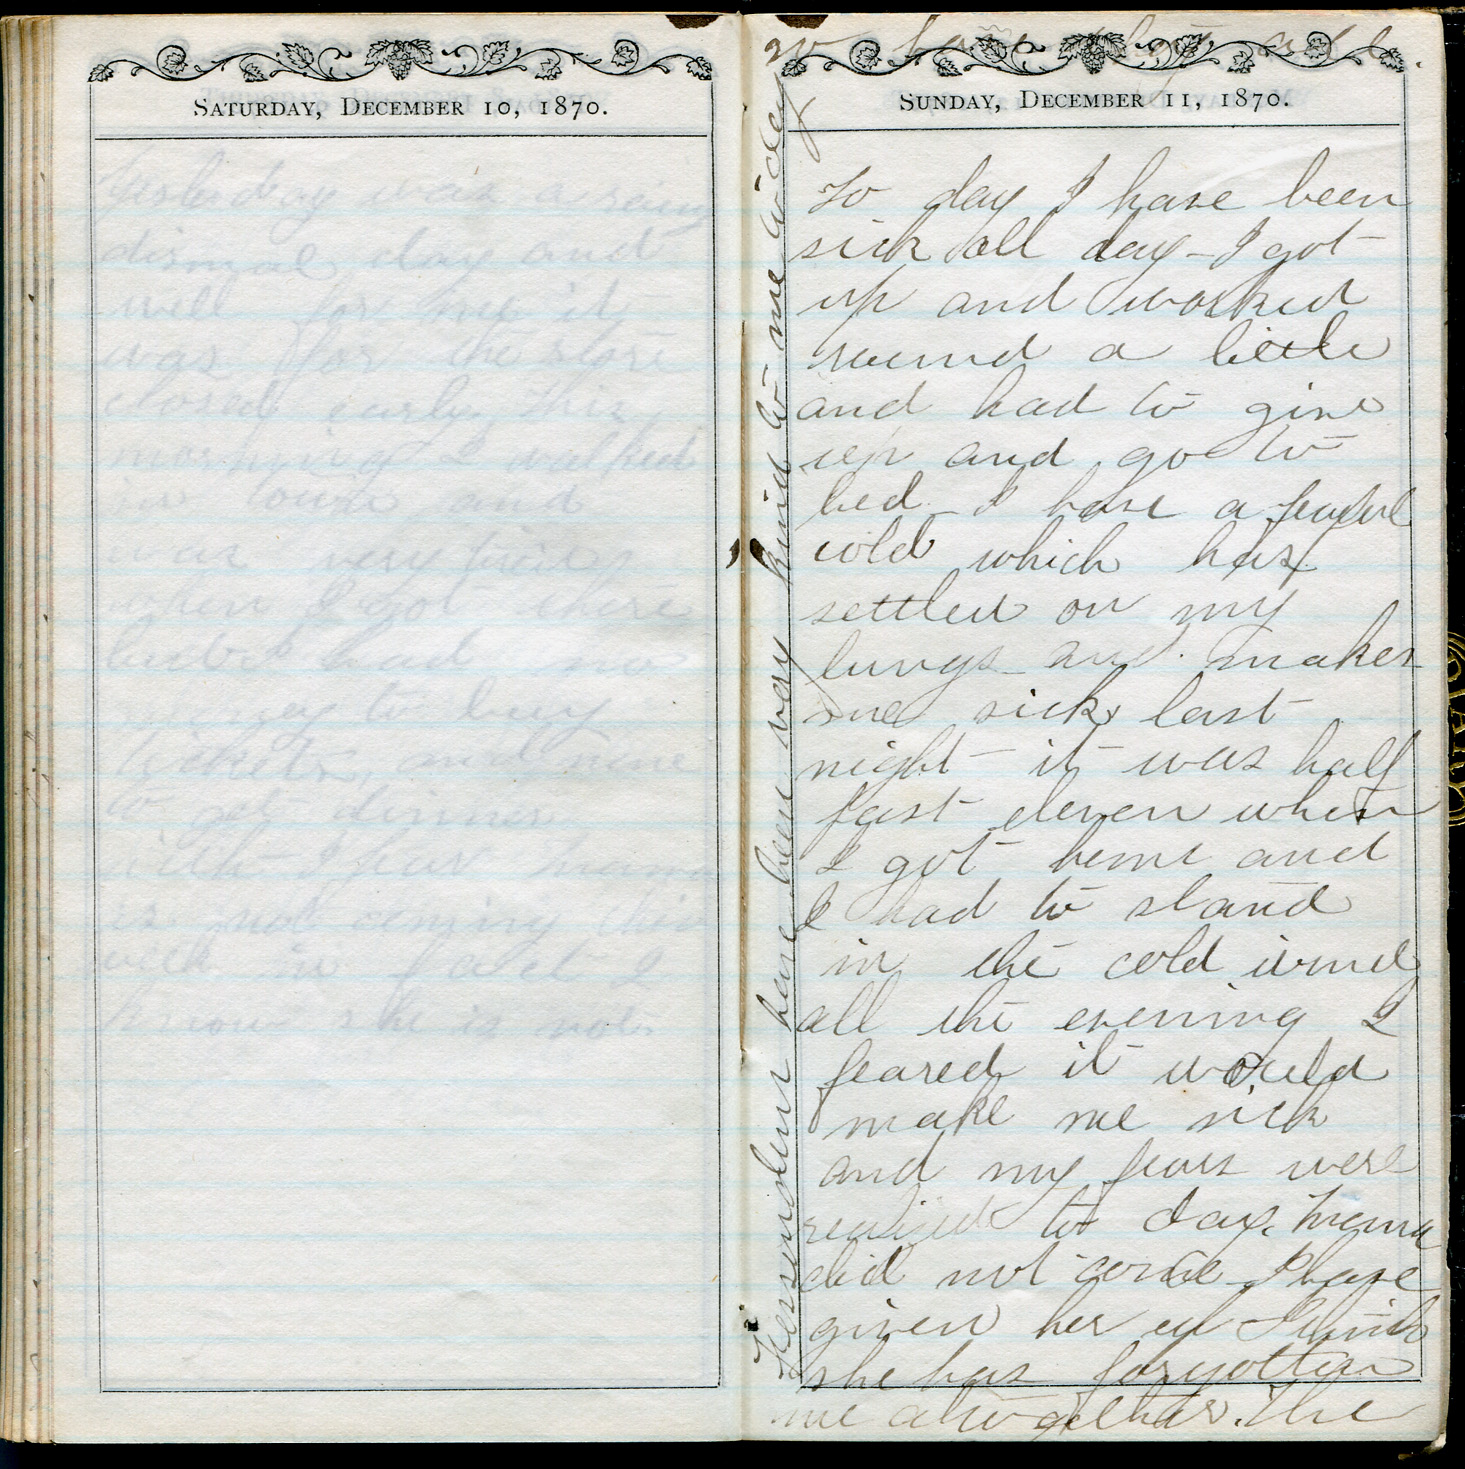 SATURDAY, DECEMBER 10, 1870.
Yesterday was a rainy
dismal day and
well for me it
was for the store
closed early. This
morning I walked
in town and
was very tired
when I got there
but I had no
money to buy
tickets, and none
to get dinner
with I fear Mama
is not coming this
week in fact I
know she is not.
SUNDAY, DECEMBER 11, 1870.
To day I have been
sick all day - I got
up and worked
round a little
and had to give
up and go to
bed. I have a fearful
cold which has
settled on my
lungs and makes
me sick, last
night it was half
past eleven when
I got home and
I had to stand
in the cold wind
all the evening I
feared it would
make me sick
and my fears were
realized to day. Mama
did not come I have
given her up I think
she has forgotten
me altogether. The
have been very kind to me to day